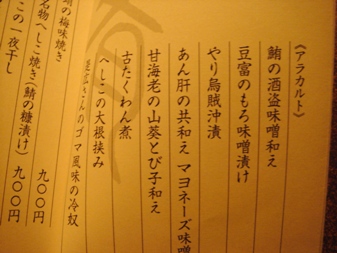 《アラカルト》
鮪の酒盗味噌和え
豆富のもろ味噌漬け
やり烏賊沖漬
あん肝の共和え マヨネーズ味噌
甘海老の山葵とび子和え
古たくわん煮
へしこの大根挟み
さんのゴマ風味の冷奴
の梅味焼き 九〇〇円
名物へしこ焼き(鯖の糠漬け) 九〇〇円
この一夜干し